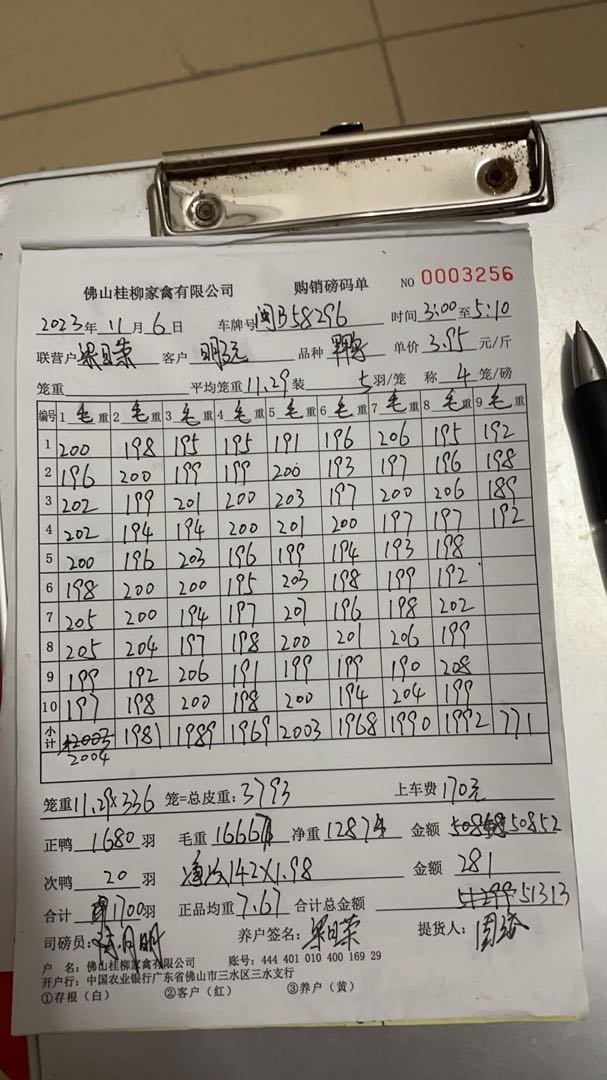 佛山桂柳家禽有限公司 购销磅码单 NO 0003256
2023年 11月 6日 车牌号 闽B58296 时间 3:00至5:10
联营户 梁日荣 客户 品种 单价 3.95 元/斤
笼重 平均笼重 11.29 装 5 羽/笼 称 4 笼/磅
编号 1 毛重 2 毛重 3 毛重 4 毛重 5 毛重 6 毛重 7 毛重 8 毛重 9 毛重
1 200 198 195 195 191 196 206 195 192
2 196 200 199 199 200 193 197 196 198
3 202 199 201 200 203 197 200 206 189
4 202 194 194 200 201 200 197 197 192
5 200 196 203 196 199 194 193 198
6 198 200 200 195 203 198 199 192
7 205 200 194 197 207 196 198 202
8 205 204 197 198 200 201 206 199
9 199 192 206 191 199 199 190 208
10 197 198 200 198 200 194 204 199
小计 2003 1981 1989 1969 2003 1968 1990 1992 771
2004
笼重 11.29×336 笼=总皮重: 3793 上车费 170元
正鸭 1680 羽 毛重 16667 净重 12874 金额 50852
次鸭 20 羽 142×1.98 金额 281
合计 1700羽 正品均重 7.67 合计总金额 51299 51313
司磅员: 养户签名: 梁日荣 提货人:
户 名: 佛山桂柳家禽有限公司 账号: 444 401 010 400 169 29
开户行: 中国农业银行广东省佛山市三水区三水支行
①存根（白） ②客户（红） ③养户（黄）